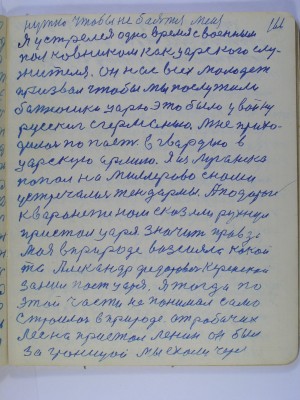 нужно чтобы не баятся меня
166
Я устрелся одно время своенным
пол ковником как царского слу-
жителя. Он нас всех молодеж
призвал чтобы мы послужили
батюшке царю. Это было у войну
русских с германию. Мне прихо-
дилось по пасть в гвардию в
царскую армию. Я из Луганска
попал на Миллерово снами
устречался жендармы. А подороге
к Воронеж нам сказали рухнул
пристол царя значить правда
моя вприроде вазсиял какой
та Александр федорович Керенский
занял пост царя. Я тогда по
этой части не понимал само
строилось вприроде. от рабочих
Лесна пристал Ленин он был
за границой мы ехали чере